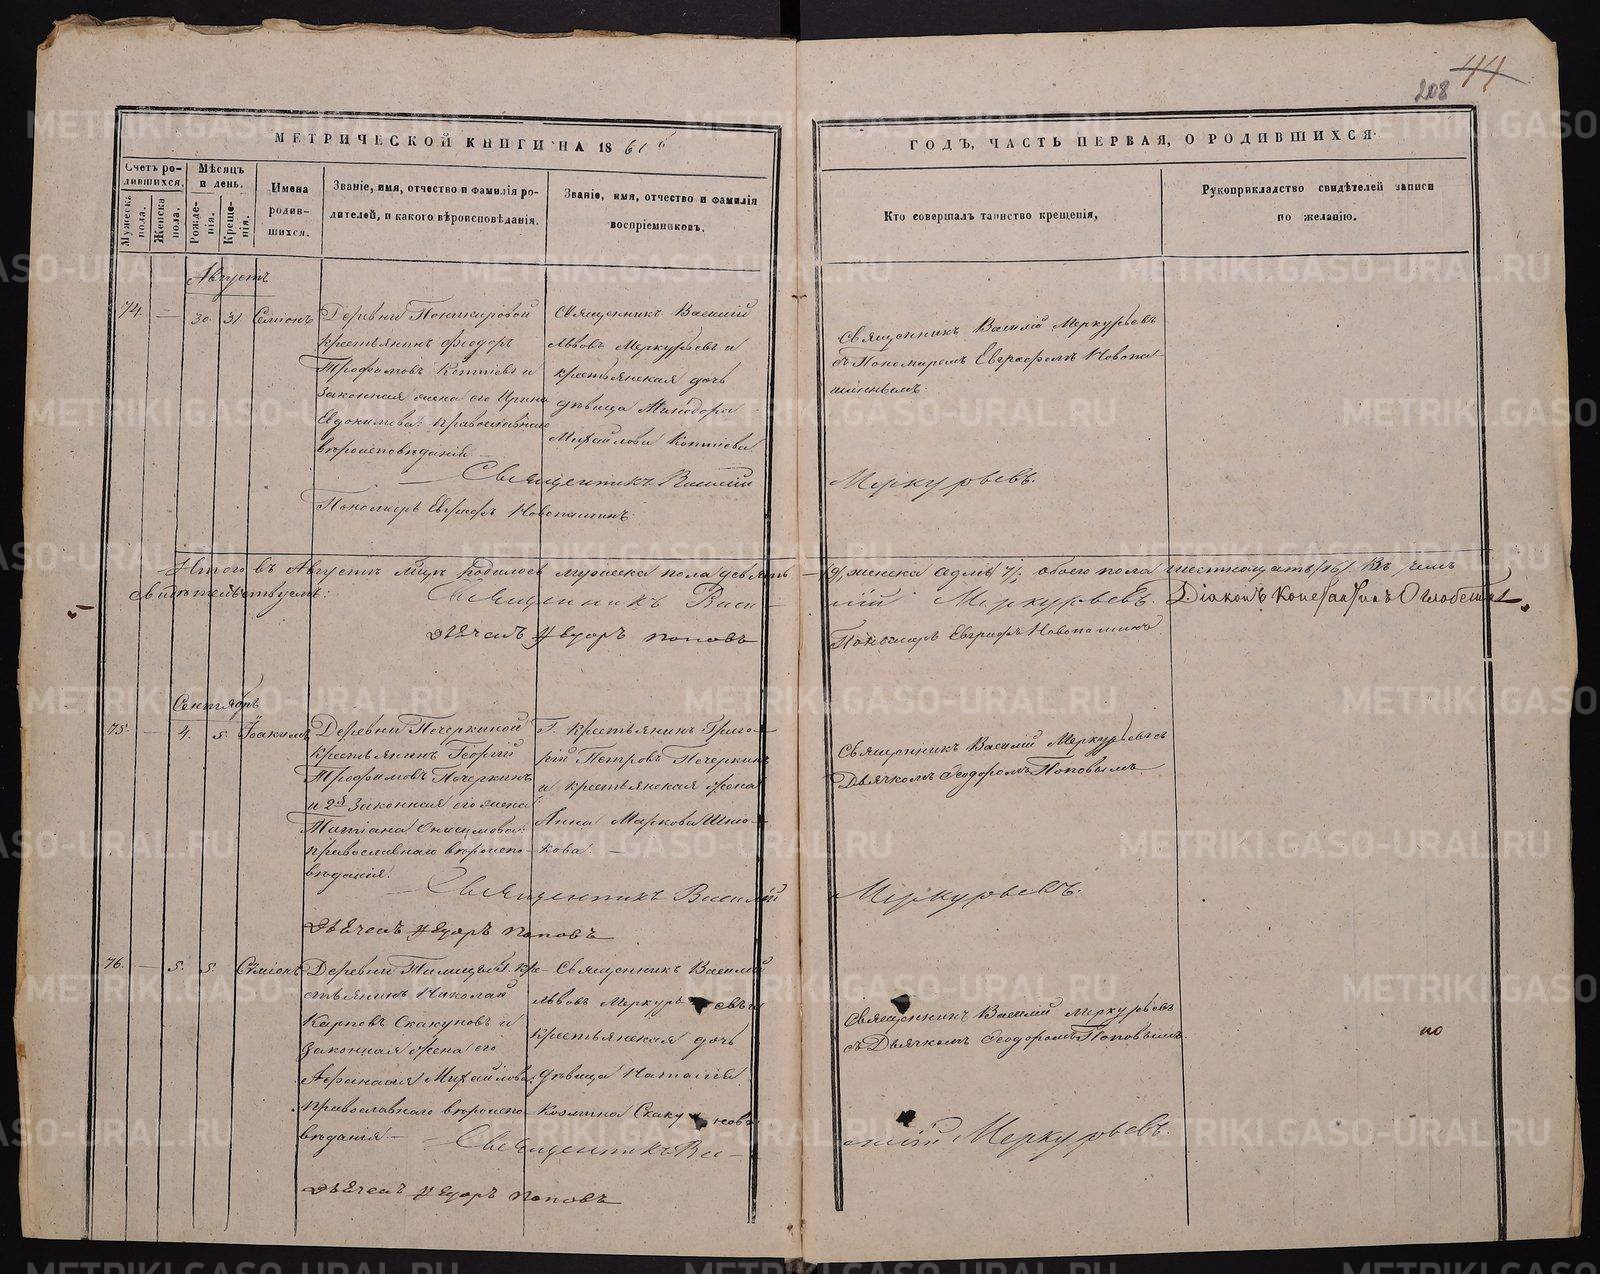 44
208
МЕТРИЧЕСКОЙ КНИГИ НА 1861й
ГОДЪ, ЧАСТЬ ПЕРВАЯ, О РОДИВШИХСЯ.
Счетъ родившихся.
Мужеска пола.
Женска пола.
Мѣсяцъ и день.
Рожденія.
Крещенія.
Имена родившихся.
Званіе, имя, отчество и фамилія родителей, и какого вѣроисповѣданія.
Званіе, имя, отчество и фамилія воспріемниковъ.
Кто совершалъ таинство крещенія,
Рукоприкладство свидѣтелей записи по желанію.
Августъ
74.
—
30
31
Симіонъ
Деревни
крестьянинъ Феодоръ
Трофимовъ Коптіевъ и
законная жена его Ирина
Евдокимова: православнаго
вѣроисповѣданія.
Священникъ Василій
Львовъ Меркурьевъ и
крестьянская дочь
дѣвица Минодора
Михайлова Коптіева.
Священникъ Василій Меркурьевъ
съ Пономаремъ Евграфомъ Новопа-
шиннымъ.
Священникъ Василій
Меркурьевъ.
Пономарь Евграфъ Новопашинъ
Итого въ Августѣ мцѣ родилось мужеска пола девять
(9), женска седмь (7): обоего пола шестнадцать (16). Въ чемъ
свидѣтельствуемъ:
Священникъ Васи-
лій Меркурьевъ.
Діаконъ Константинъ
Дьячекъ Федоръ Поповъ
Пономарь Евграфъ Новопашинъ
Сентябрь
75.
—
4.
5.
Іоакимъ
Деревни Печеркиной
крестьянинъ Георгій
Трофимовъ Печеркинъ
и 2я законная его жена
Татіана Онисимова:
православнаго вѣроиспо-
вѣданія.
Г. крестьянинъ Григо-
рій Петровъ Печеркинъ
и крестьянская жена
Анна Маркова
Священникъ Василій Меркурьевъ съ
Дьячкомъ Феодоромъ Поповымъ.
Священникъ Василій
Меркурьевъ.
Дьячекъ Федоръ Поповъ
76.
—
5.
5.
Сѵміонъ
Деревни
кре-
стьянинъ Николай
Карповъ Скакуновъ и
законная жена его
Афанасія Михайлова:
православнаго вѣроиспо-
вѣданія.
Священникъ Василій
Львовъ Меркурьевъ и
крестьянская дочь
дѣвица Наталія
Козмина Скакунова
Священникъ Василій Меркурьевъ
съ Дьячкомъ Феодоромъ Поповымъ.
Священникъ Ва-
силій Меркурьевъ.
Дьячекъ Федоръ Поповъ
по
METRIKI.GASO-URAL.RU